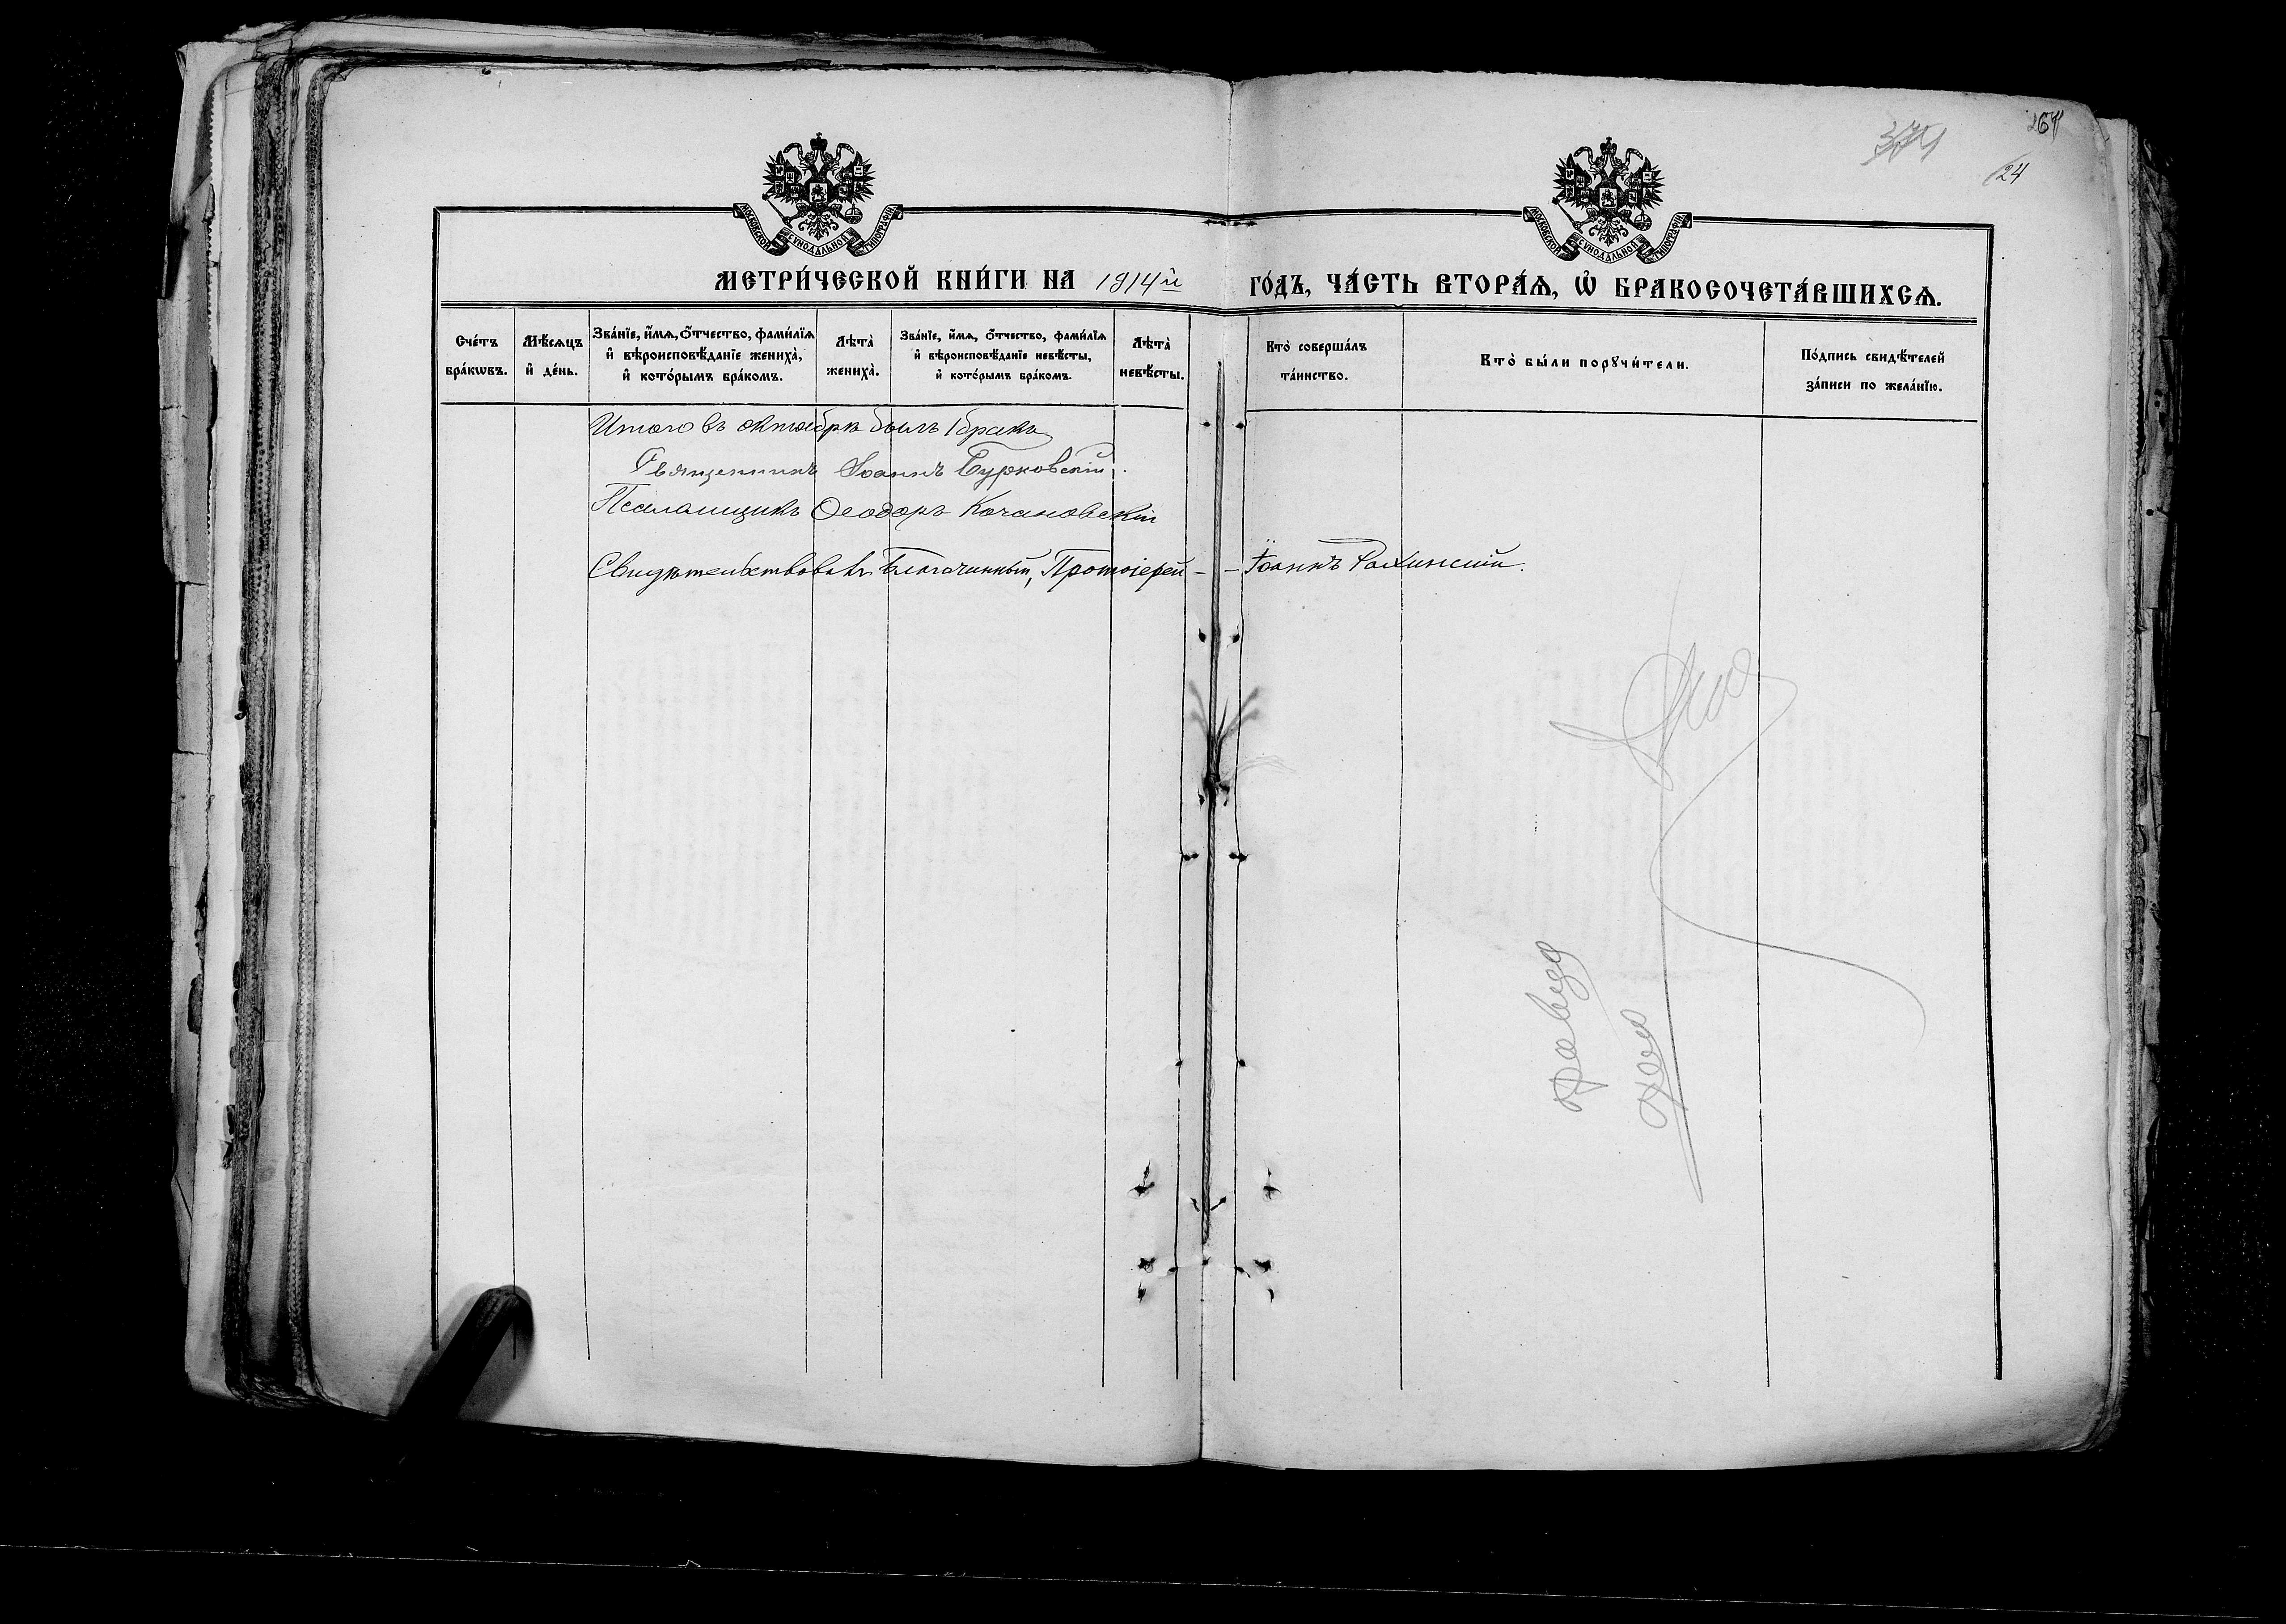 264
24
МОСКОВСКОЙ СѴНОДАЛЬНОЙ ТИПОГРАФІИ
МОСКОВСКОЙ СѴНОДАЛЬНОЙ ТИПОГРАФІИ
МЕТРИ́ЧЕСКОЙ КНИ́ГИ НА 1914й ГО́ДЪ, ЧА́СТЬ ВТОРА́Ѧ, Ѡ҆ БРАКОСОЧЕТА́ВШИХСѦ.
Сче́тъ
бра́кѡвъ.
Мѣ́сѧцъ
и҆ де́нь.
Зва́нїе, и҆́мѧ, ѻ҆́тчество, фами́лїѧ
и҆ вѣроисповѣ́данїе жениха̀,
и҆ кото́рымъ бра́комъ.
Лѣта̀
жениха̀.
Зва́нїе, и҆́мѧ, ѻ҆́тчество, фами́лїѧ
и҆ вѣроисповѣ́данїе невѣ́сты,
и҆ кото́рымъ бра́комъ.
Лѣта̀
невѣ́сты.
Кто̀ соверша́лъ
та́инство.
Кто̀ бы́ли порꙋчи́тели.
По́дпись свидѣ́телей
за́писи по жела́нїю.
Итого въ октябрѣ былъ 1 бракъ
Священникъ Іоаннъ Бурковскій.
Псаломщикъ Ѳеодоръ Кочановскій
Свидѣтельствовалъ Благочинный, Протоіерей - - Іоаннъ